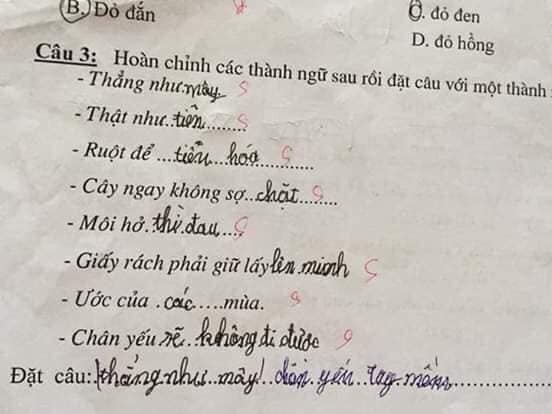 B. Đỏ đắn
C. đỏ đen
D. đỏ hồng
Câu 3: Hoàn chỉnh các thành ngữ sau rồi đặt câu với một thành
- Thẳng như mây
- Thật như tiền
- Ruột để tiêu hóa
- Cây ngay không sợ chặt
- Môi hở thì đau
- Giấy rách phải giữ lấy lên minh
- Ước của các mùa.
- Chân yếu sẽ không đi được
Đặt câu: thẳng như mây! chân yếu tay mềm